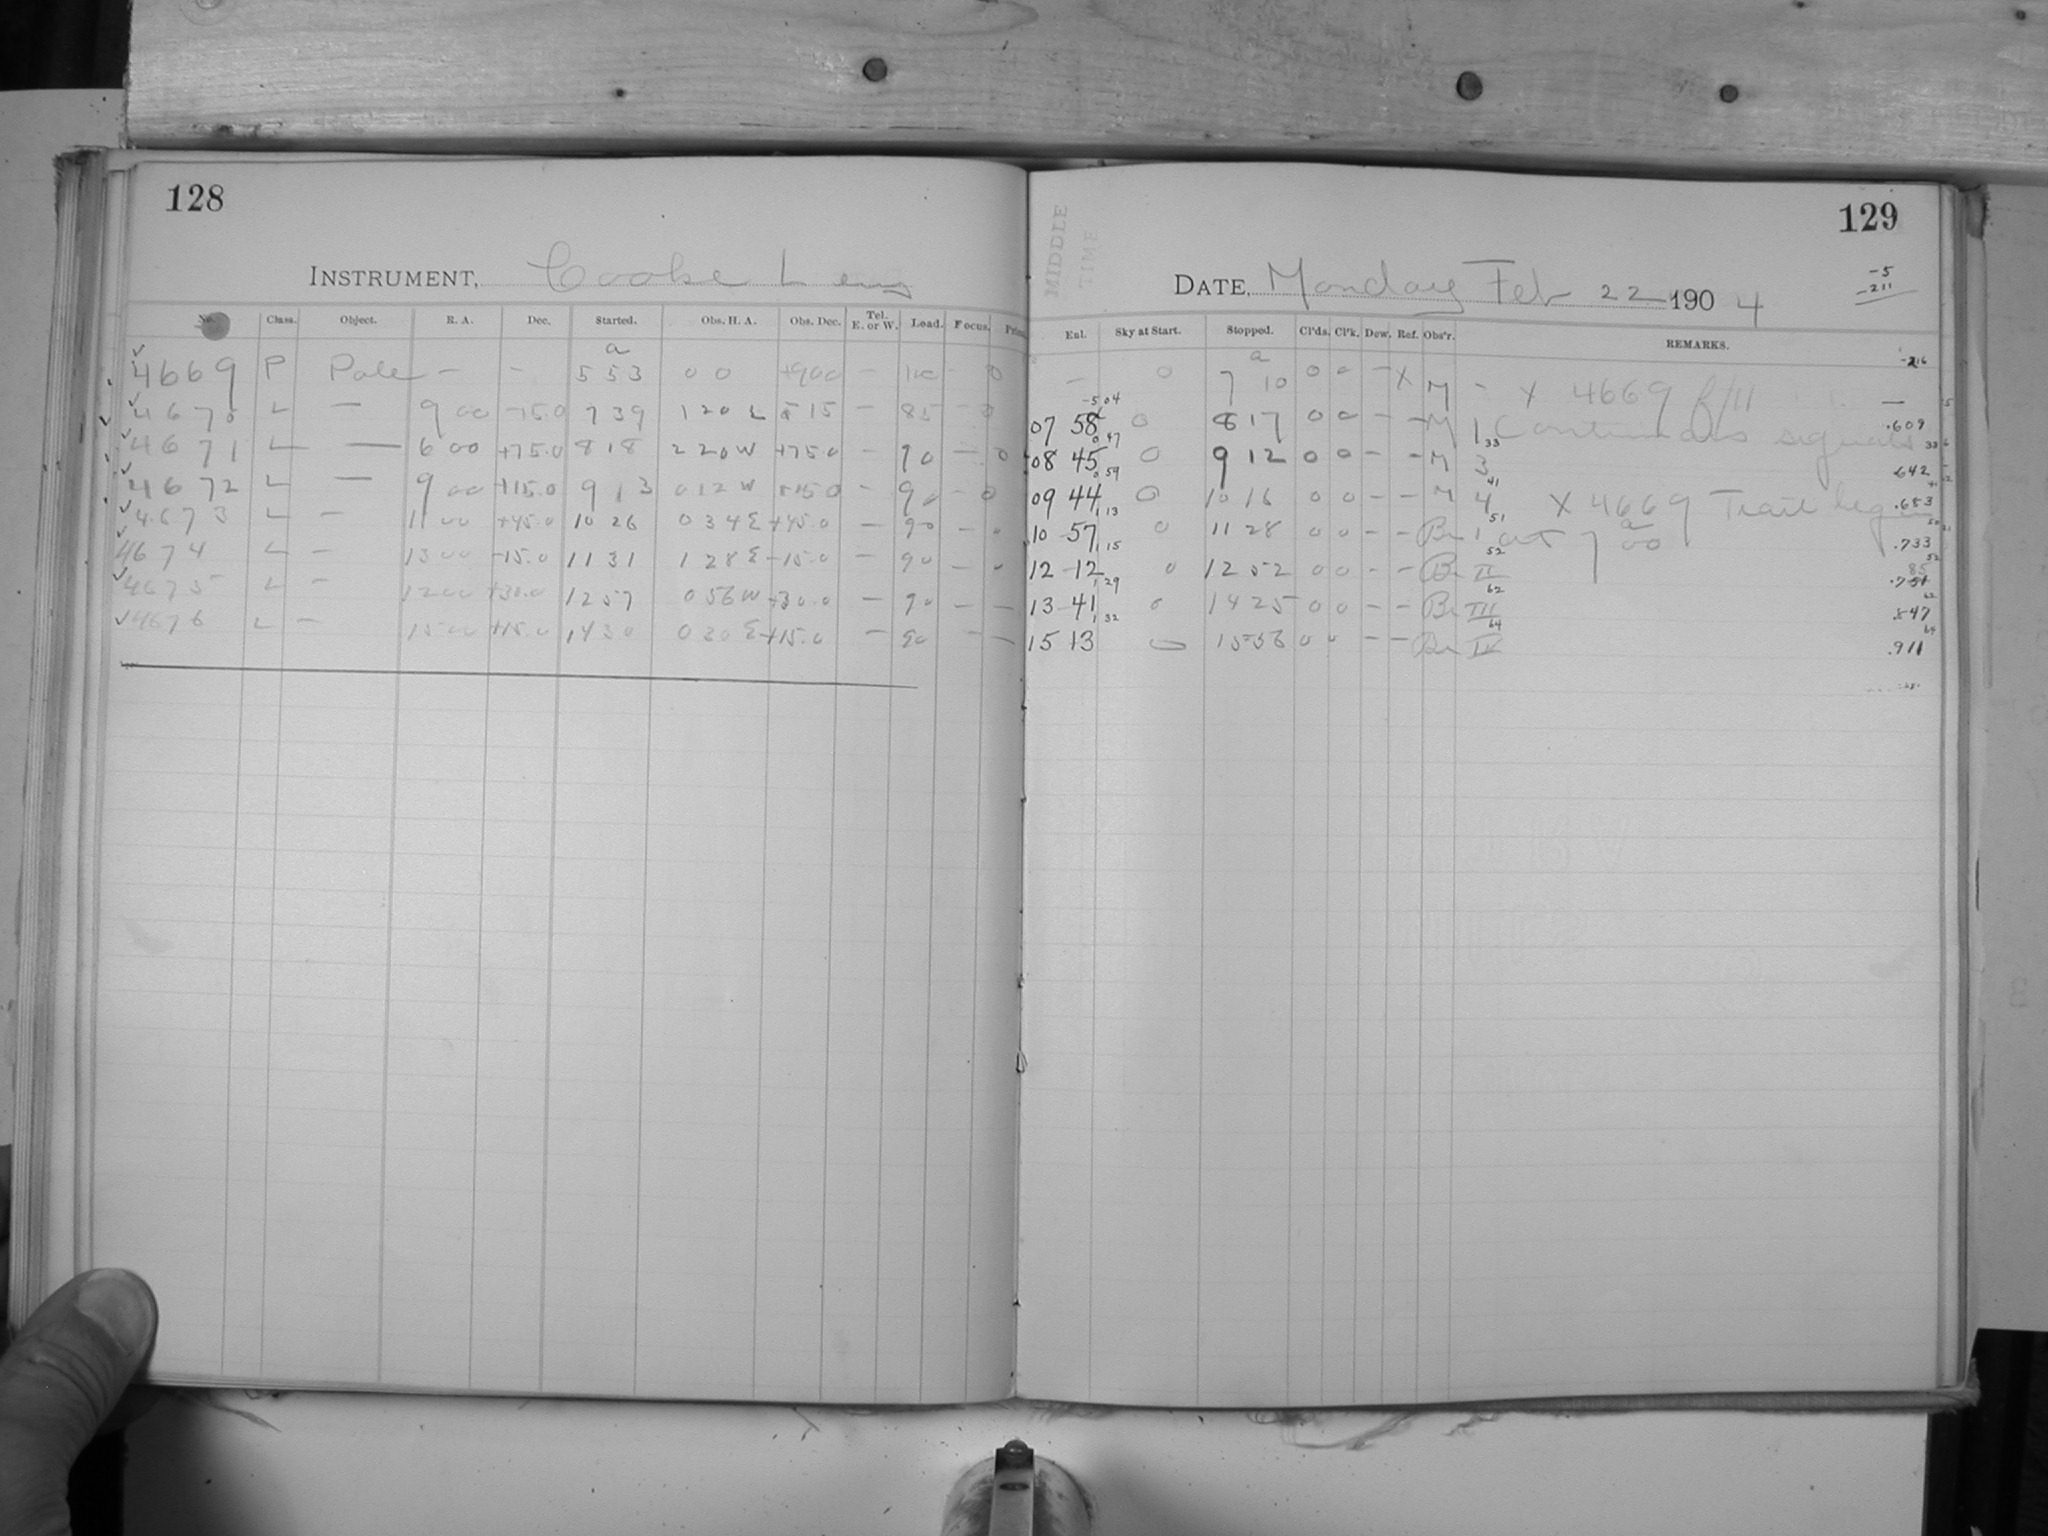 128
INSTRUMENT, Cooke Lens
No. Class. Object. R. A. Dec. Started. Obs. H. A. Obs. Dec. Tel. E. or W. Load. Focus.
4669 P Pole — — a 5 53 0 0 +90.0 — 110 — 0
4670 L — 9 00 -15.0 7 39 1 20 -15 — 85 — 0
4671 L — 6 00 +75.0 8 18 2 20 W +75.0 — 90 — 0
4672 L — 9 00 +15.0 9 13 0 12 W +15.0 — 90 — 0
4673 L — 11 00 +45.0 10 26 0 34 E +45.0 — 90 — 0
4674 L — 13 00 -15.0 11 31 1 28 E -15.0 — 90 — 0
4675 L — 12 00 +30.0 12 57 0 56 W +30.0 — 90 — —
4676 L — 15 00 +15.0 14 30 0 30 E +15.0 — 90 — —
129
MIDDLE TIME
DATE, Monday Feb 22 1904
-5
-211
Exl. Sky at Start. Stopped. Cl'ds. Cl'k. Dew. Ref. Obs'r. REMARKS.
-216
— 0 a 7 10 0 0 — X M — X 4669 f/11 —
-5 04
07 58 0 8 17 0 0 — — M 1 Continuous signals .609
0 47 33
08 45 0 9 12 0 0 — — M 3 .642
0 59 41
09 44 0 10 16 0 0 — — M 4 X 4669 Trail began .653
1 13 51
10 57 0 11 28 0 0 — — Br 1 at 7 a 00 .733
1 15 52
12 12 0 12 52 0 0 — — Br II 85
1 29 62
13 41 0 14 25 0 0 — — Br III .847
1 32 64
15 13 0 15 56 0 0 — — Br IV .911